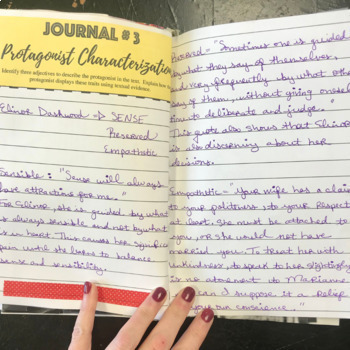 JOURNAL #3
Protagonist Characterization
Identify three adjectives to describe the protagonist in the text. Explain how
protagonist displays these traits using textual evidence.
Elinor Dashwood → SENSE
Reserved
Empathetic
Sensible: "Sense will always
have attractions for me."
For Elinor, she is guided by what
is always sensible and not by what
is in heart. This causes her
pain until she learns to balance
sense and sensibility.
= "Sometimes one is guided
by what they say of themselves,
and very frequently by what other
say of them, without giving oneself
time to deliberate and judge."
This quote also shows that Elinor
is discerning about her
decisions.
Empathetic = "Your wife has a claim
to your politeness, to your respect
at least. She must be attached to
you, or she would not have
married you. To treat her with
unkindness, to speak to her slightingly
is no atonement to Marianne
can I suppose it a relief
your own conscience."